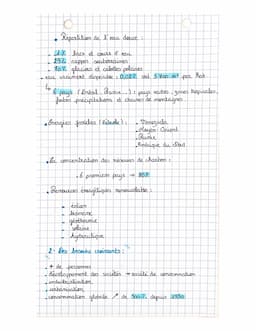 • Répartition de l'eau douce :
lacs et cours d'eau
nappes souterraines
glaciers et calottes polaires
• eau vraiment disponible : soit par hab.
↳ 6 pays (Brésil, Russie...) : pays vastes, zones tropicales,
fortes précipitations et chaînes de montagnes.
• Énergies fossiles (pétrole) : - Venezuela
- Moyen-Orient
- Russie
- Amérique du Nord
• La concentration des réserves de charbon :
. 6 premiers pays →
• Ressources énergétiques renouvelables :
- éolien
- biomasse
- géothermie
- solaire
- hydraulique
2- Des besoins croissants :
. + de personnes
. développement des sociétés → société de consommation
. industrialisation
. urbanisation
. consommation globale ↗ de depuis